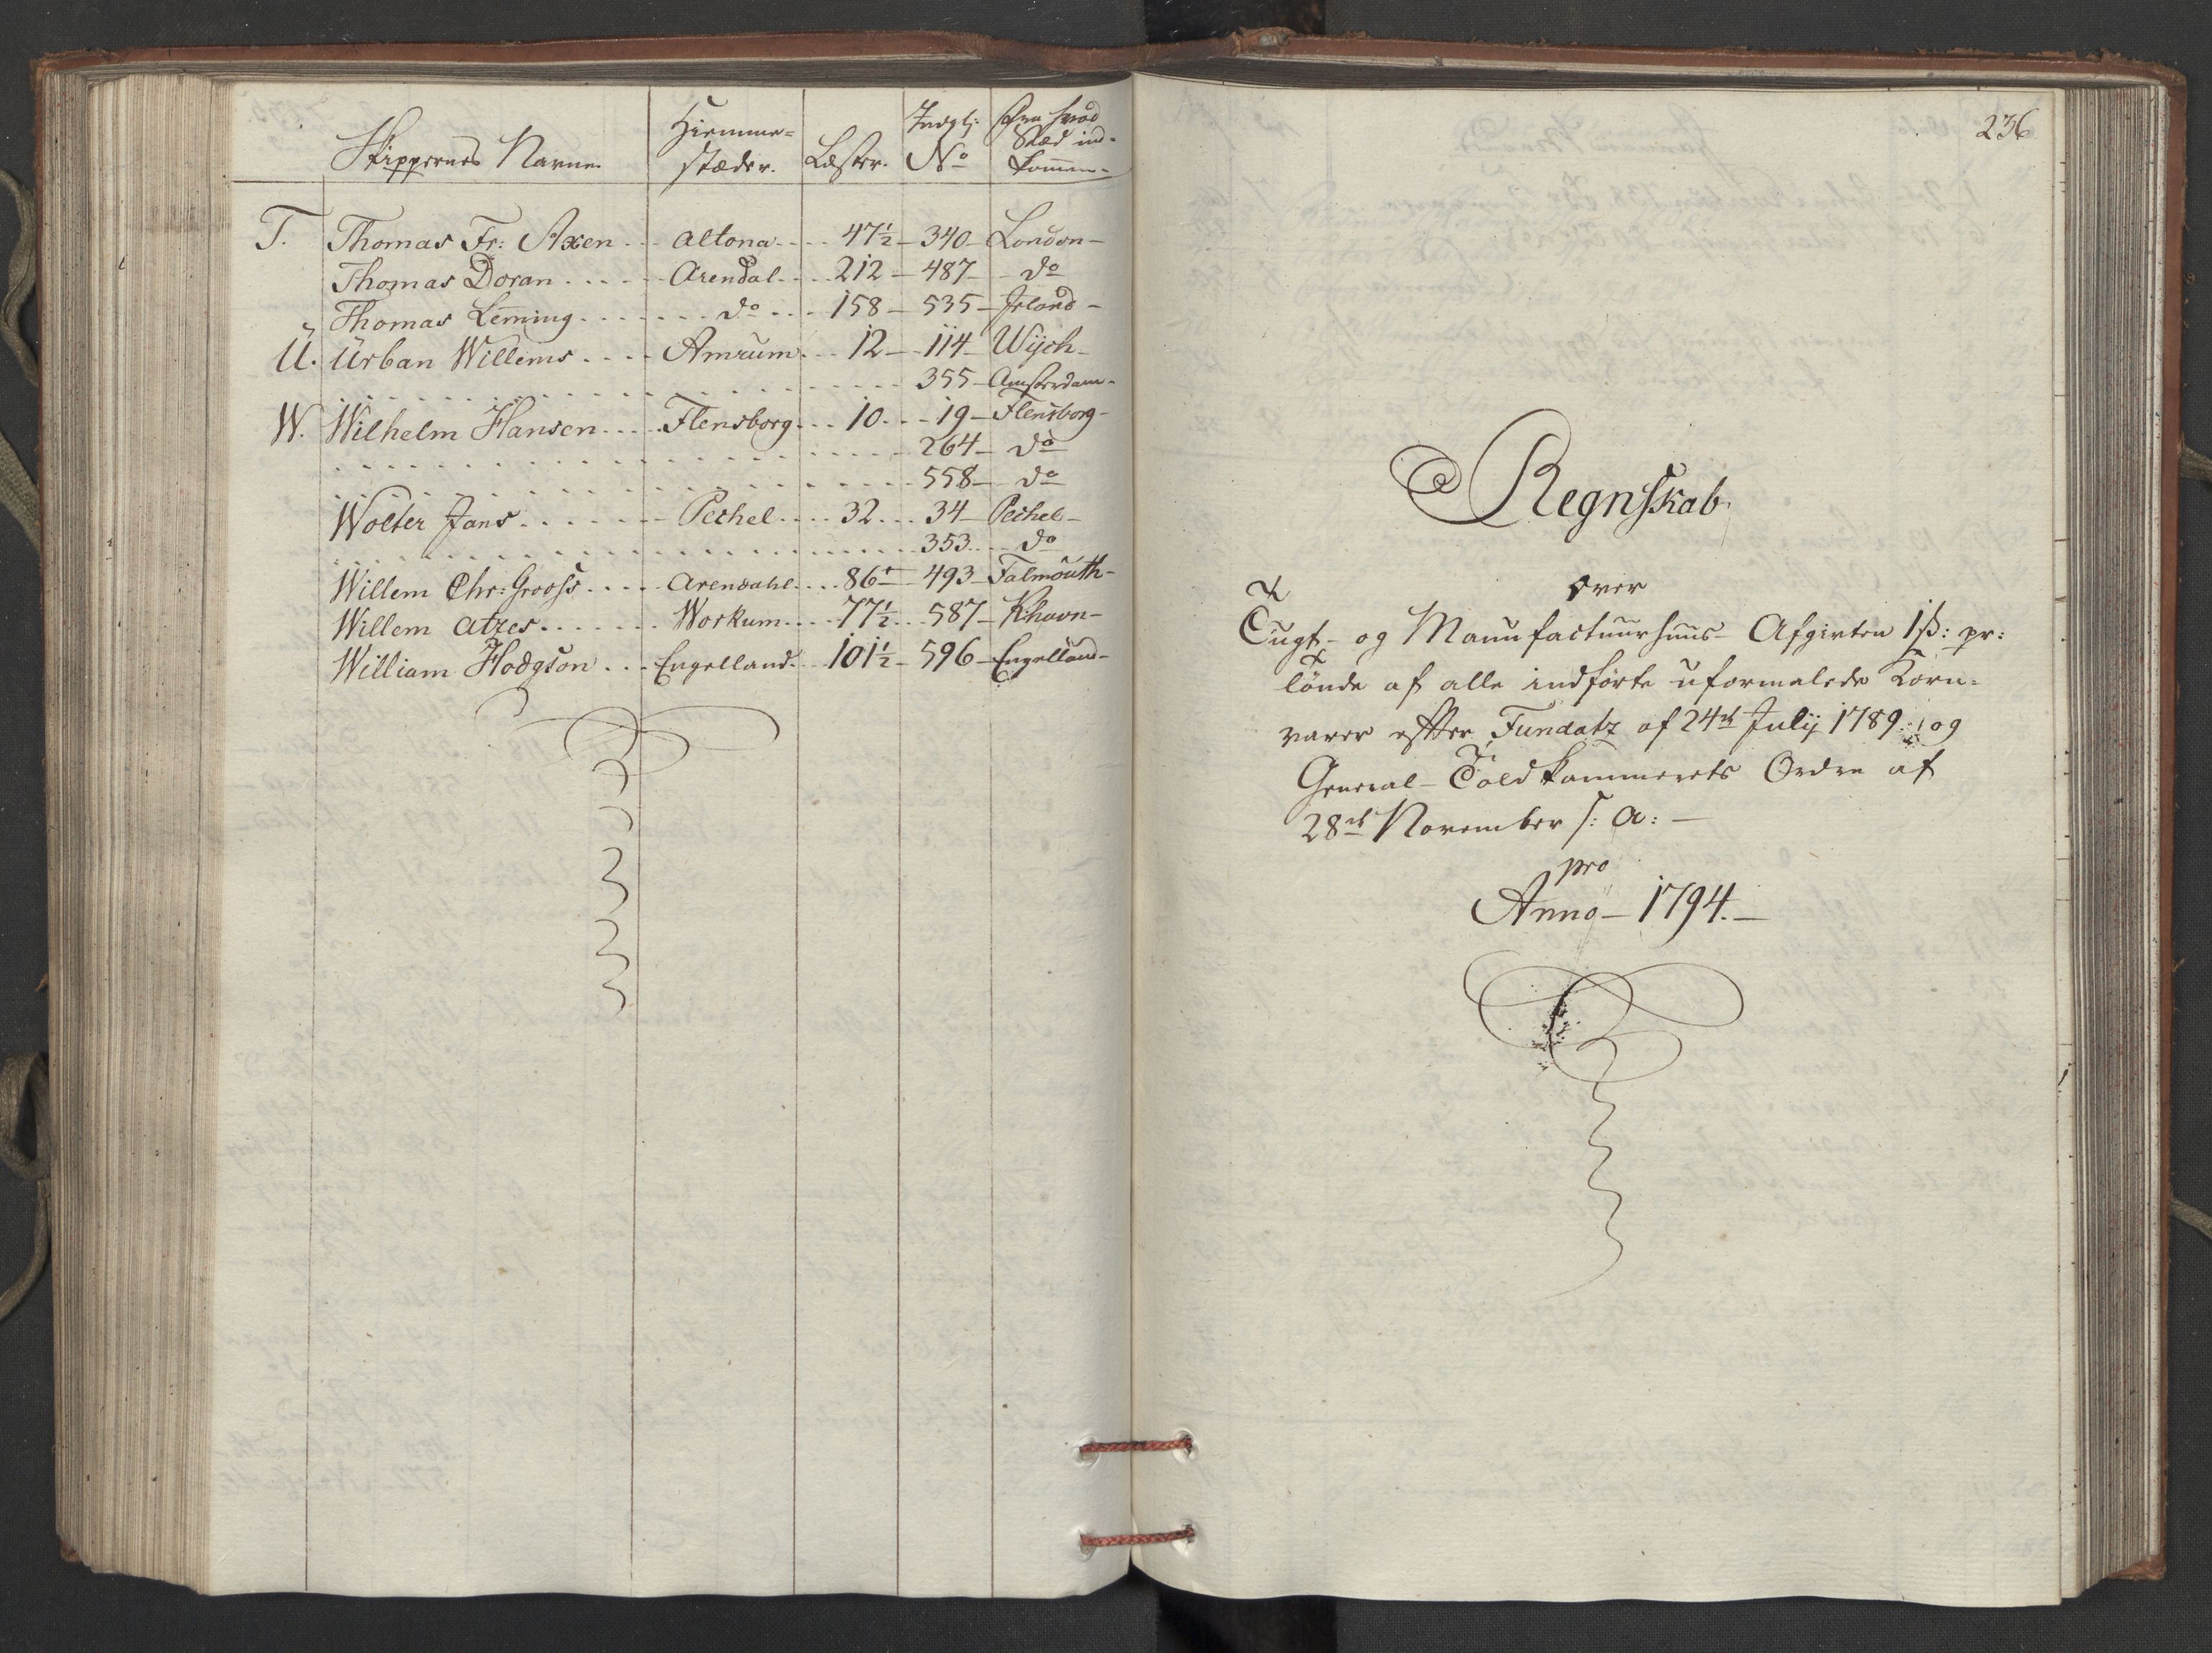 Skippernes Navne. Hiemme= stæder. Læster. Indgl: No Fra hvad Stæd ind- kommen.
T. Thomas Fr: Axen - - Altona - - - 47½ - 340 - London -
Thomas Doran - - - - - Arendal - - 212 - 487 - - do
Thomas Leming - - - - - - do - - - 158 - 535 - Irland -
U. Urban Willems - - - - Amrum - - 12 - 114 - Wijch -
- - - - - - - - - - - 355 - Amsterdam -
W. Wilhelm Hansen - - - - Flensborg - - 10 - - - 19 - Flensborg -
- - - - - - - - - - - 264 - do
- - - - - - - - - - - 558 - do
Wolter Jans - - - - - - - Pechel - - - 32 - - - 34 - Pechel -
- - - - - - - - - - - 353 - - - do
Willem Chr: Grooss - - - - Arendahl - - - 86 - 493 - Falmouth -
Willem Atzes - - - - - - Workum - - - 77½ - - 587 - Khavn -
William Hodgson - - - Engelland - - 101½ - 596 - Engelland -
236
Regnskab
over
Tugt- og Manufactuurhuus- Afgivten 1 ß: pr:
Tönde af alle indförte uformalede Korn=
varer efter Fundatz af 24de Julij 1789: og
General-Toldkammerets Ordre af
28de November s: a: -
pro
Anno - 1794. -